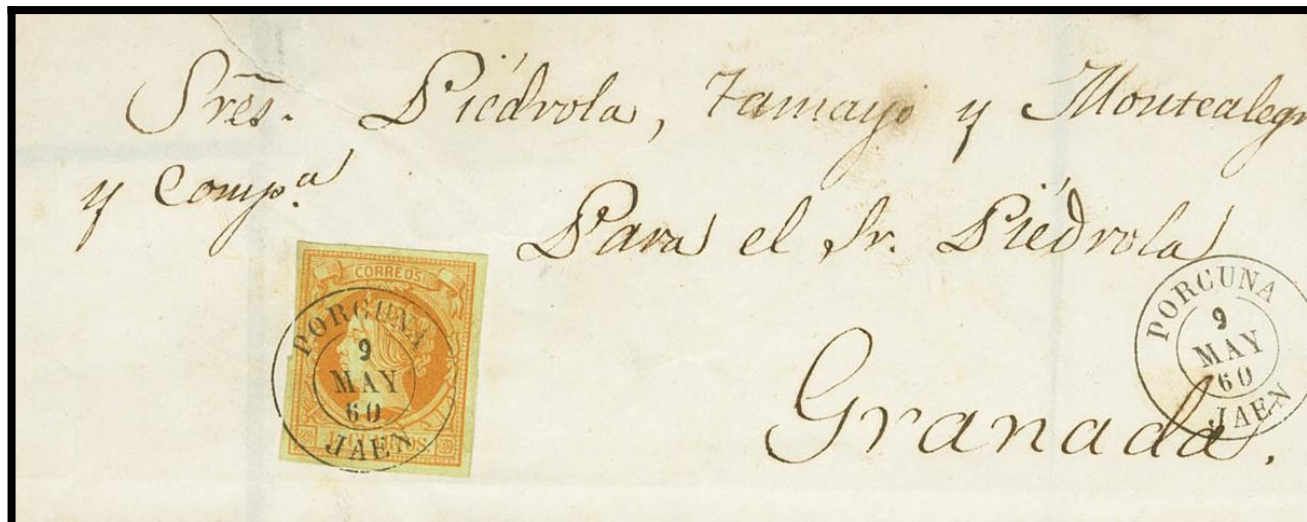 Sres. Piédrola, Tamayo y Montealegr
y Comp.a
Para el Sr. Piédrola
Granada.
CORREOS
PORCUNA
9
MAY
60
JAEN
PORCUNA
9
MAY
60
JAEN